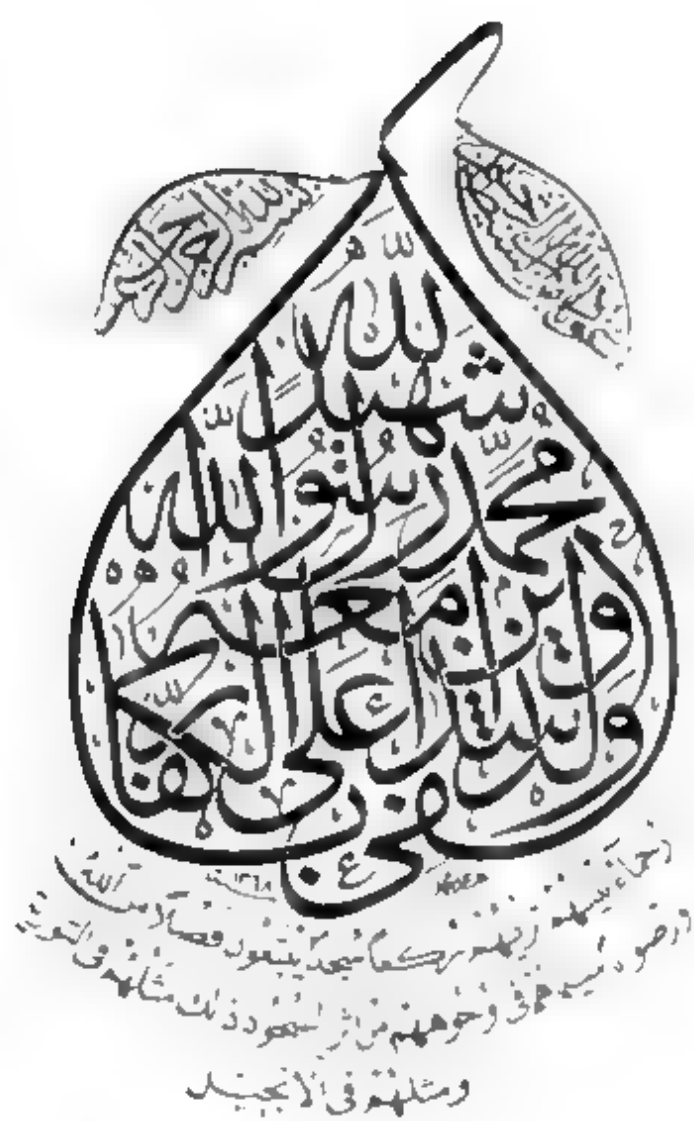 اعوذ بالله من الشيطان الرجيم
بسم الله الرحمن الرحيم
وكفى بالله شهيدا
محمد رسول الله
والذين معه
اشداء على الكفار
١٣٦٨
رحماء بينهم تريهم ركعا سجدا يبتغون فضلا من الله
ورضوانا سيماهم في وجوههم من اثر السجود ذلك مثلهم في التورية
ومثلهم في الانجيل